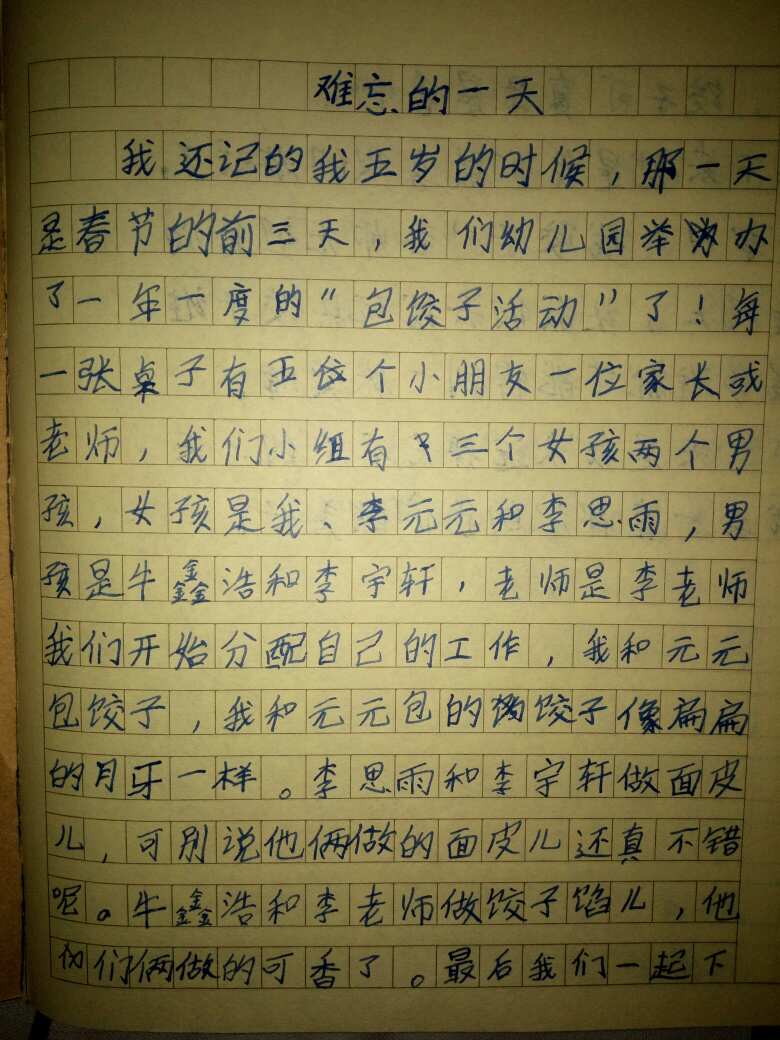 难忘的一天
我还记的我五岁的时候，那一天
是春节的前三天，我们幼儿园举办
了一年一度的“包饺子活动”了！每
一张桌子有五位个小朋友一位家长或
老师，我们小组有三个女孩两个男
孩，女孩是我、李元元和李思雨，男
孩是牛鑫浩和李宇轩，老师是李老师
我们开始分配自己的工作，我和元元
包饺子，我和元元包的饺子像扁扁
的月牙一样。李思雨和李宇轩做面皮
儿，可别说他俩做的面皮儿还真不错
呢。牛鑫浩和李老师做饺子馅儿，他
们俩做的可香了。最后我们一起下